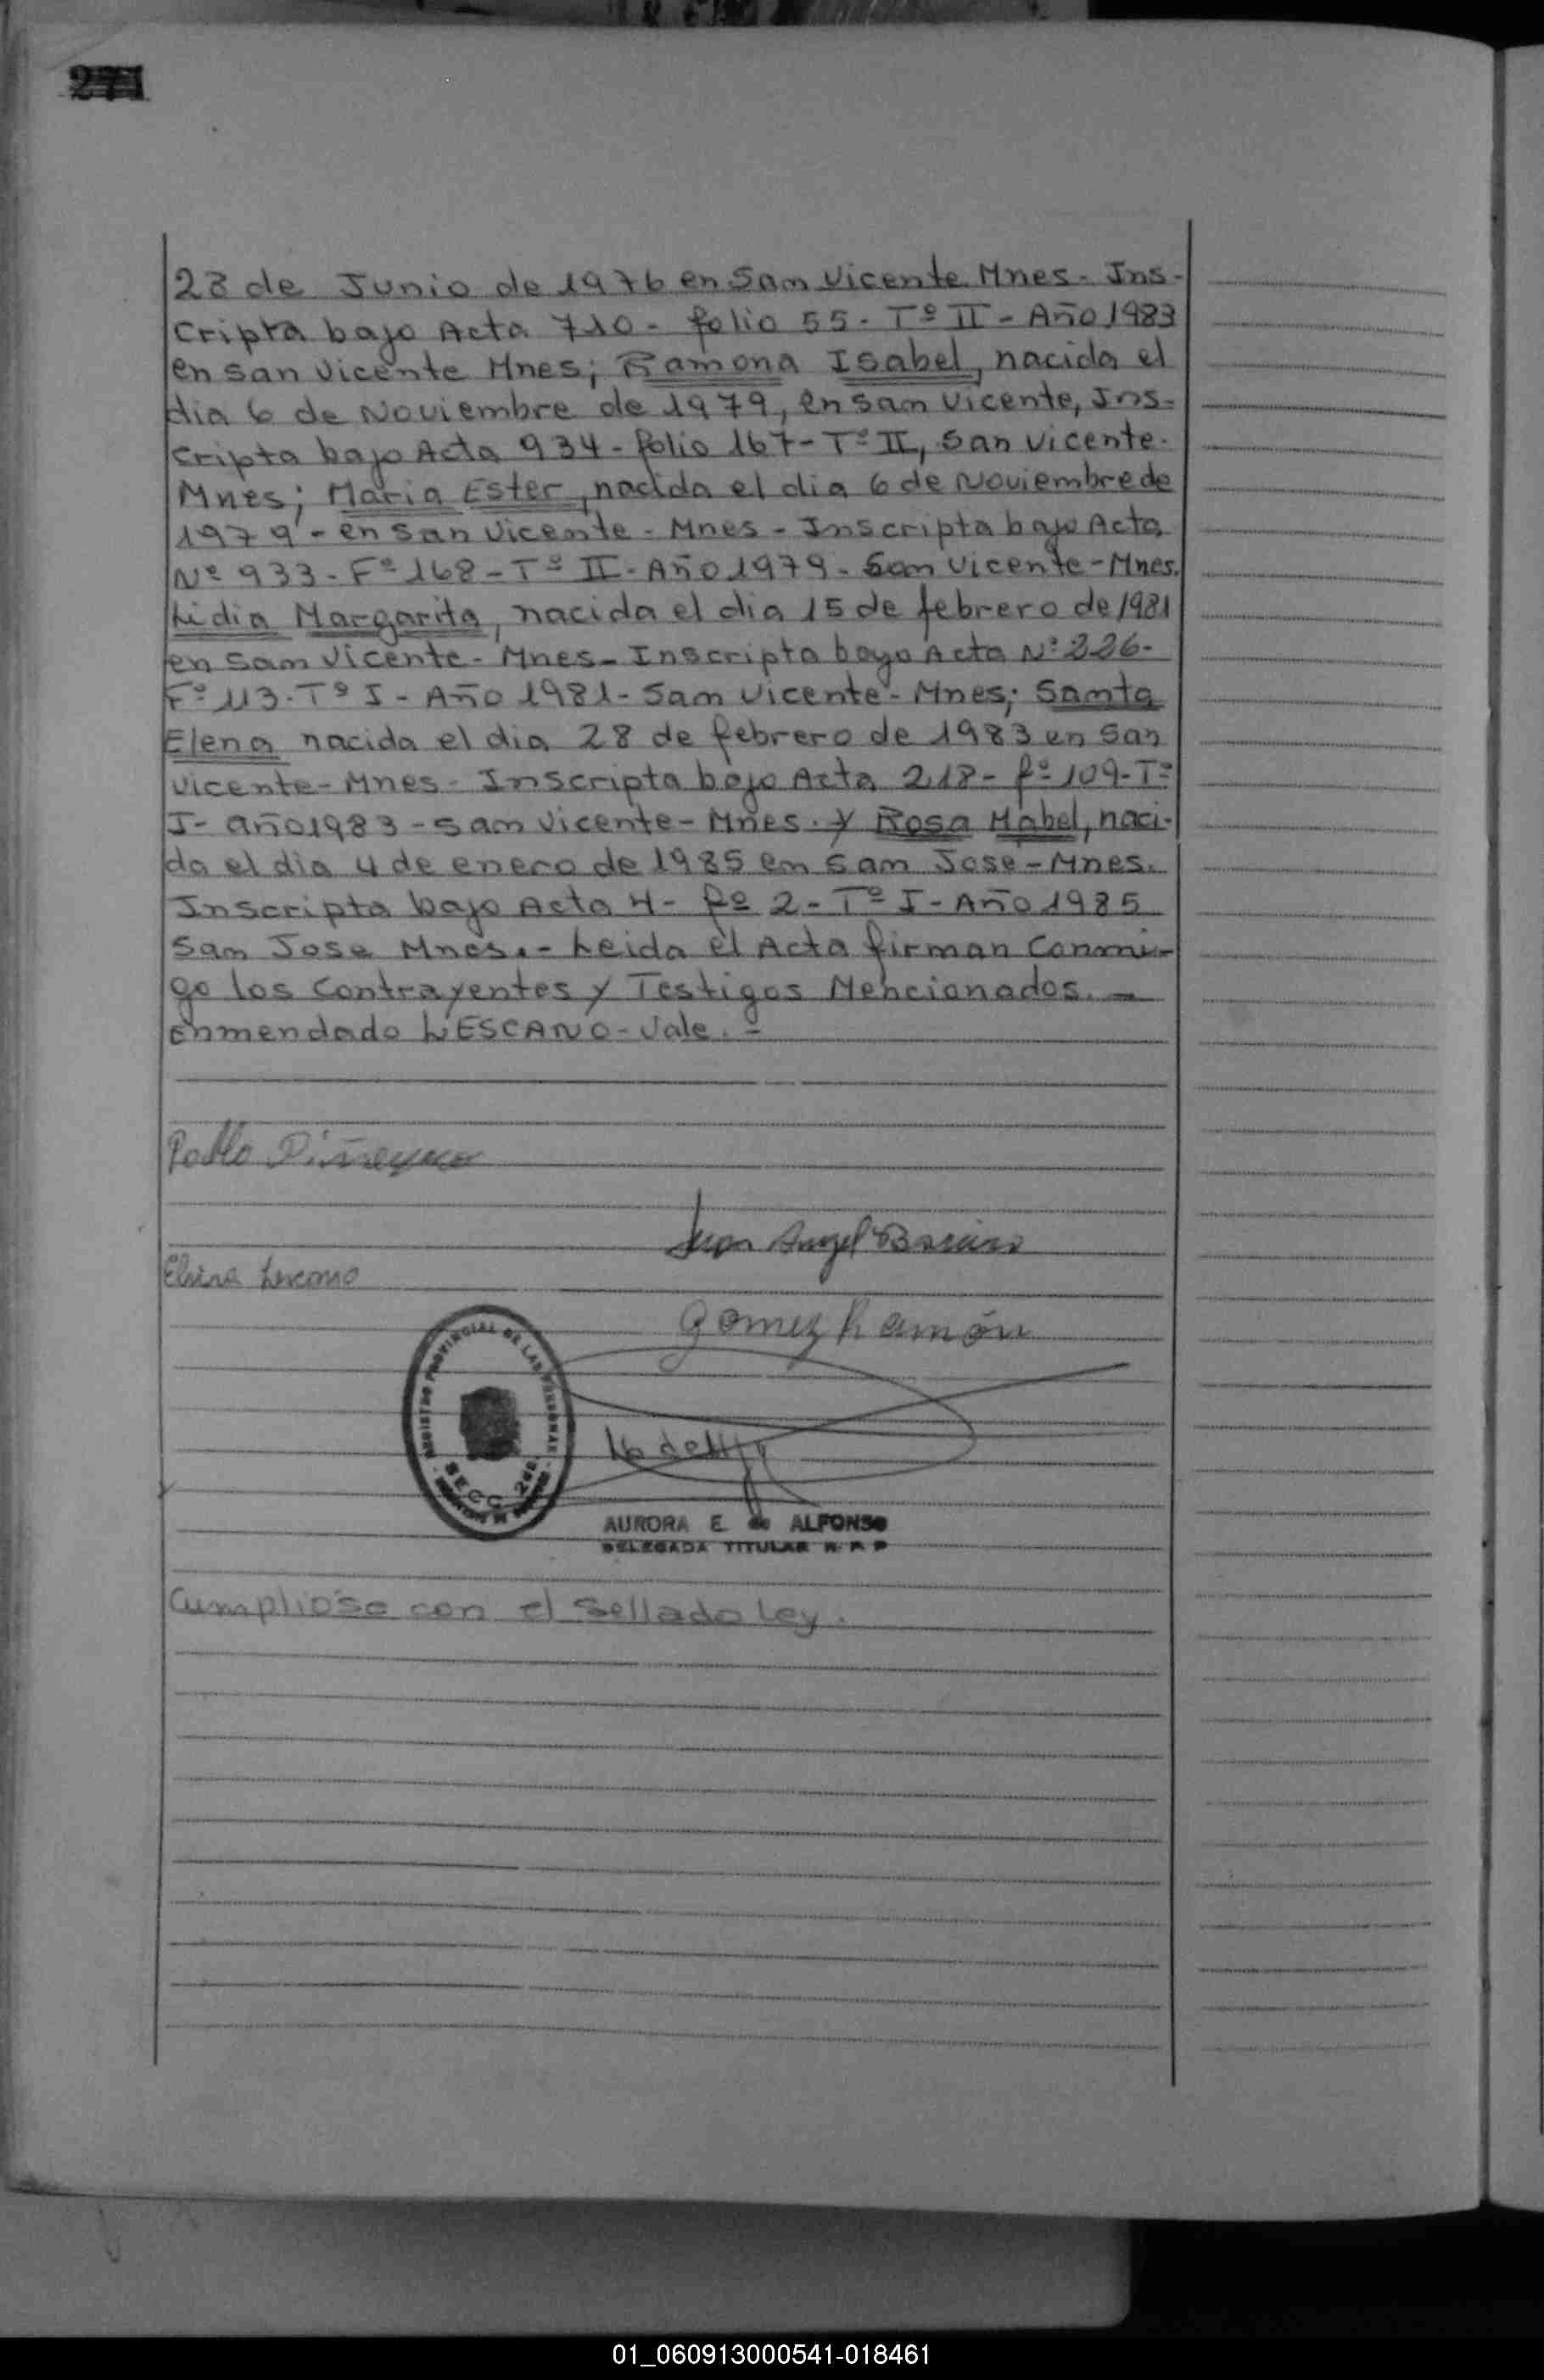 271
28 de Junio de 1976 en San Vicente Mnes - Ins-
cripta bajo Acta 710 - folio 55 - Tº II - Año 1983
en San Vicente Mnes; Ramona Isabel, nacida el
dia 6 de Noviembre de 1979, en San Vicente, Ins-
cripta bajo Acta 934 - folio 167 - Tº II, San Vicente -
Mnes; Maria Ester, nacida el dia 6 de Noviembre de
1979 - en San Vicente - Mnes - Inscripta bajo Acta
Nº 933 - Fº 168 - Tº II - Año 1979 - San Vicente - Mnes.
Lidia Margarita, nacida el dia 15 de febrero de 1981
en San Vicente - Mnes - Inscripta bayo Acta Nº 226 -
Fº 113 - Tº I - Año 1981 - San Vicente - Mnes; Santa
Elena nacida el dia 28 de febrero de 1983 en San
Vicente - Mnes - Inscripta bajo Acta 218 - fº 109 - Tº
I - año 1983 - San Vicente - Mnes. y Rosa Mabel, naci-
da el dia 4 de enero de 1985 en San Jose - Mnes.
Inscripta bajo Acta 4 - fº 2 - Tº I - Año 1985
San Jose Mnes. - Leida el Acta firman Conmi-
go los Contrayentes y Testigos Mencionados. -
Enmendado LESCANO - Vale. -
Pablo Piñeyro
Juan Angel
Elvira Lescano
Gomez Ramón
REGISTRO PROVINCIAL DE LAS PERSONAS
SECC
AURORA E. de ALFONSO
DELEGADA TITULAR R. P. P
Cumplióse con el Sellado Ley.
01_060913000541-018461